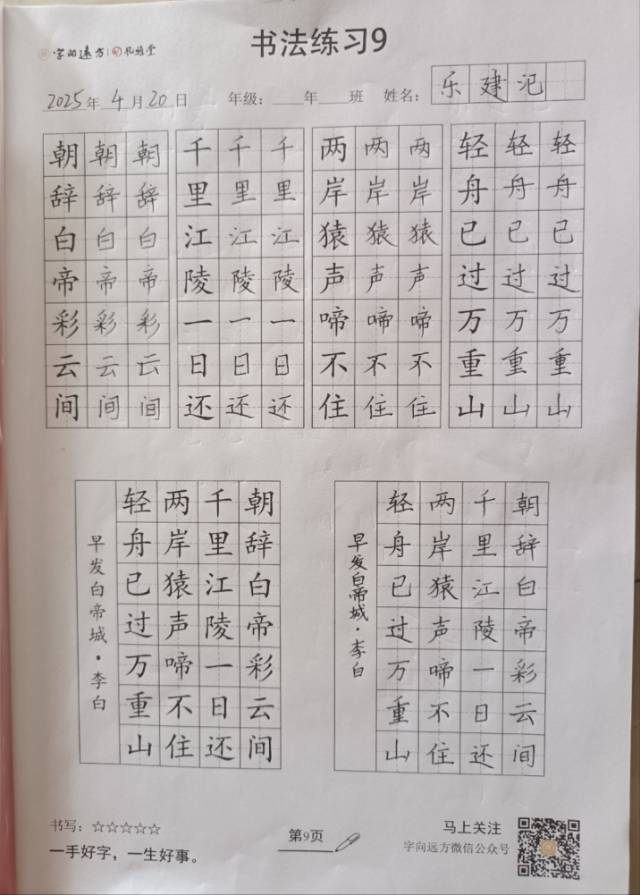 字向遠方
书法练习9
2025年4月20日 年级：__年__班 姓名：乐建
朝辞白帝彩云间
朝辞白帝彩云间
朝辞白帝彩云间
千里江陵一日还
千里江陵一日还
千里江陵一日还
两岸猿声啼不住
两岸猿声啼不住
两岸猿声啼不住
轻舟已过万重山
轻舟已过万重山
轻舟已过万重山
朝辞白帝彩云间
千里江陵一日还
两岸猿声啼不住
轻舟已过万重山
早发白帝城·李白
朝辞白帝彩云间
千里江陵一日还
两岸猿声啼不住
轻舟已过万重山
早发白帝城·李白
书写：☆☆☆☆☆
一手好字，一生好事。
第9页
马上关注
字向远方微信公众号